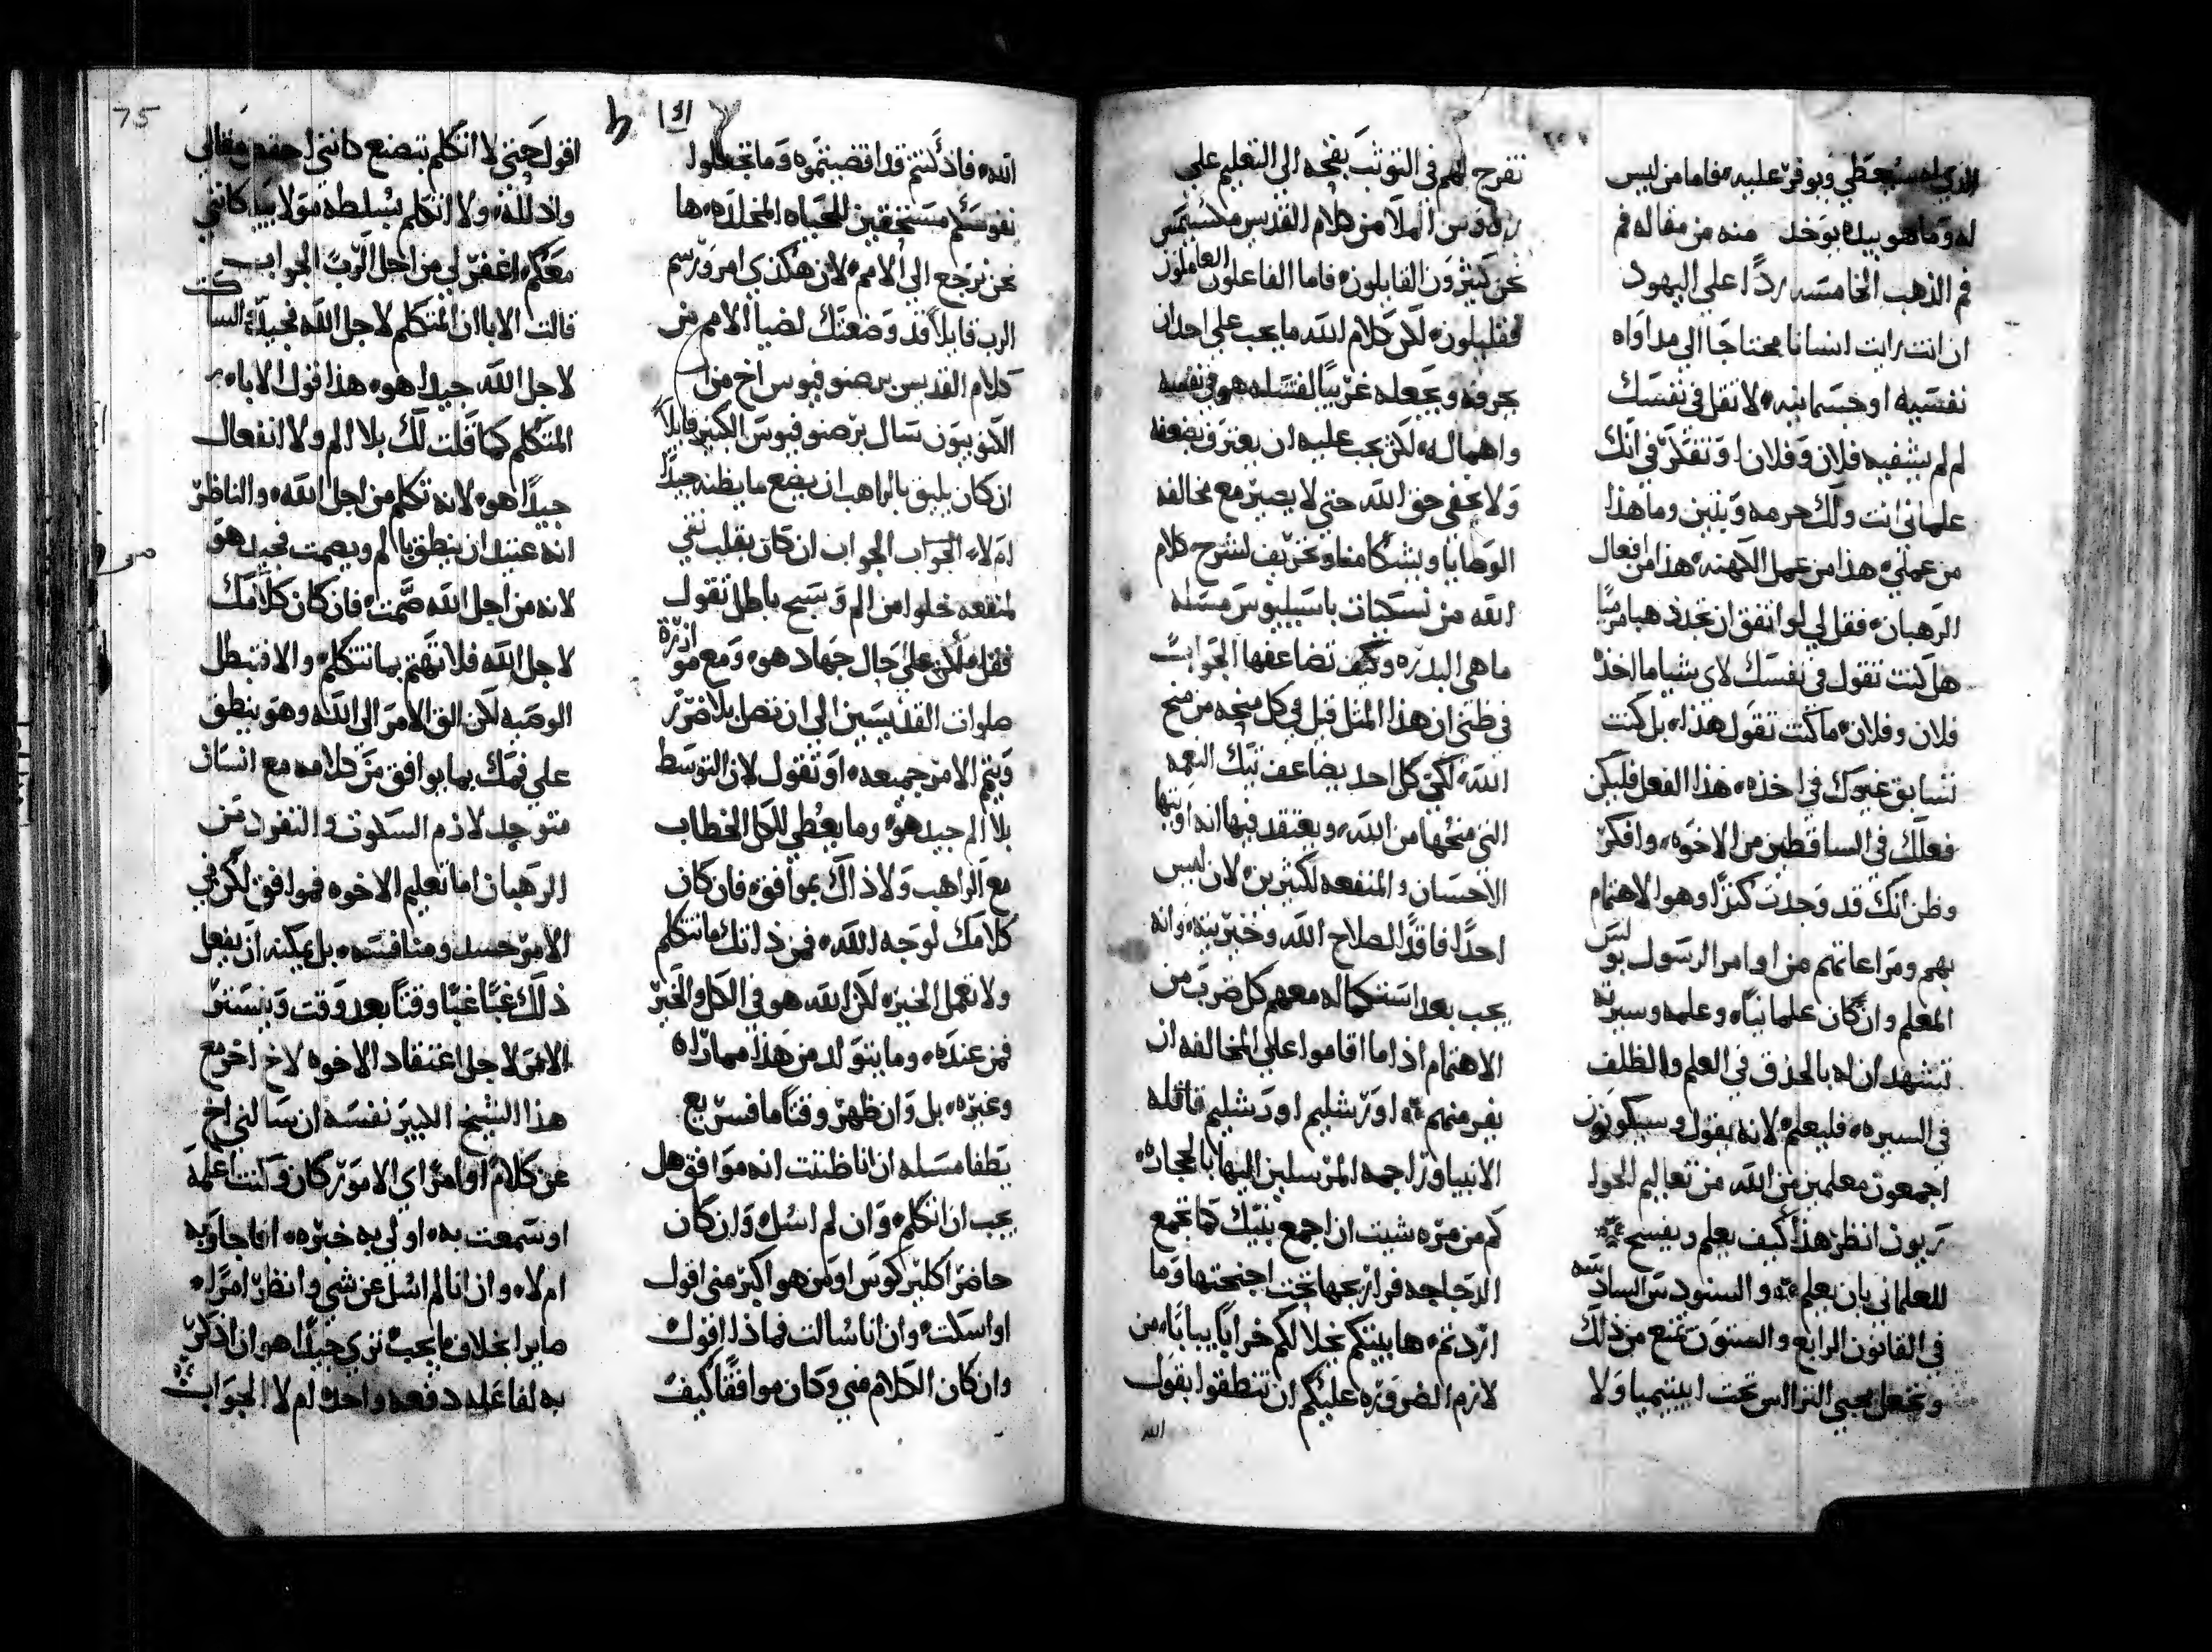 الذي له سيعطي ويوفر عليه فاما من ليس
له وما هو بيده يوخذ منه من مقاله فم
فم الذهب الخامسه ردًا علي اليهود
ان انت رايت انسانا محتاجًا الي مداواه
نفسيه او جسمانيه لا تقل في نفسك
لم لم يشفيه فلان وفلان وتفتكر في انك
علماني انت ولك حرمه وبنين وما هذا
من عملي هذا من عمل الكهنه هذا من افعال
الرهبان فقل لي لو اتفق ان تجد ذهبا مرميًا
هل كنت تقول في نفسك لاي شيا ما اخذه
فلان وفلان ما كنت تقول هذا بل كنت
تسابق غيرك في اخذه هذا الفعل فليكن
فعلك في الساقطين من الاخوه وافكر
وظن انك قد وجدت كنزًا وهو الاهتمام
بهم ومراعاتهم من اوامر الرسول بولس
المعلم وان كان علمانيًا وعلمه وسيرته
تشهد ان له بالحذق في العلم والظلف
في السيره فليعلم لانه يقول وسيكونون
اجمعون معلمين من الله من تعاليم الحوا
ريون انظر هذا كيف يعلم ويفسح
للعلماني بان يعلم والسنودس السادسه
في القانون الرابع والستون تمنع من ذلك
وتجعل يحيي النزا الس تحت ابيتيميا ولا
تفرح لهم في التوثب بقحه الي التعليم علي
روس الملا من كلام القديس مكسيمس
نحن كثيرون القايلون فاما الفاعلون العاملون
فقليلون لكن كلام الله ما يجب علي احد ان
يحرفه ويجعله غريبًا لفشله هو في نفسه
واهماله لكن يجب عليه ان يعترف بضعفه
ولا يخفي حق الله حتي لا يصير مع مخالفه
الوصايا ويشكا منا وتحريف لشرح كلام
الله من نسكيات باسيليوس مسله
ما هي البدره وكيف تضاعفها الجواب
في ظني ان هذا المثل قيل في كل منحه من منح
الله لكي كل احد يضاعف تيك النعمه
التي منحها من الله ويعتقد فيها انه اوتيها
الاحسان والمنفعه لكثيرين لان ليس
احدًا فاقدًا لصلاح الله وخيريته وانه
يجب بعد استكماله معهم كل ضرب من
الاهتمام اذا ما اقاموا علي المخالفه ان
يفر منهم اورشليم اورشليم قاتله
الانبيا وراجمه المرسلين اليها بالحجاره
كم من مره شيت ان اجمع بنيك كما تجمع
الدجاجه فراريجها تحت اجنحتها وما
اردتم ها بيتكم يخلا لكم خرابًا يبابًا من
لازم الضروره عليكم ان تنطقوا بقول
الله
الله فاذ كنتم قد اقضيتموه وما تجعلوا
نفوسكم مستحقين للحياه المخلده ها
نحن نرجع الي الامم لان هكذي امر ورسم
الرب قايلًا قد وضعتك لضيا الامم من
كلام القديس برصنوفيوس اخ من
اللاذويون سال برصنوفيوس الكبير قايلًا
ان كان يليق بالراهب ان يضع ما يظنه جيدًا
ام لا الجواب الجواب ان كان بقلب نقي
لمنفعه خلوا من الم وسبح باطل تقول
فقل ملان علي حال جهاد هو ومع موازرة
صلوات القديسين الي ان تصل بلا ضرر
ويتم الامر جميعه او تقول لان التوسط
بلا الم جيد هو وما يعطي للكل الخطاب
مع الراهب ولا ذاك بموافق فان كان
كلامك لوجه الله فمن ذاتك ما تتكلم
ولا تعمل الخير لكن الله هو في الكل والخير
فمن عنده وما يتولد من هذا مماراه
وغيره بل وان ظهر وقتًا ما فسريع
يطفا مسله ان انا ظننت انه موافق هل
يجب ان اتكلم وان لم اسل وان كان
حاضر اكليريكوس او من هو اكبر مني اقول
او اسكت وان انا سالت فماذا اقول
وان كان الكلام مني وكان موافقًا كيف
اقول حتي لا اتكلم بتصنع كانني احقه وقالي
واذلله ولا اتكلم بسلطه مولاييا كانني
معكم اغفر لي من اجل الرب الجواب
قالت الابا ان المتكلم لاجل الله فجيد الساكت
لاجل الله جيدا هو هذا قول الاباء
المتكلم كما قلت لك بلا الم ولا انفعال
جيدًا هو لانه تكلم من اجل الله والناظر
انه عتيد ان ينطق بالم ويصمت فجيد هو
لانه من اجل الله صمت فان كان كلامك
لاجل الله فلا تهتم بما تتكلم والا فتبطل
الوصيه لكن الق الامر الي الله وهو ينطق
علي فمك بما يوافق من كلامه مع انسان
متوحد لازم السكوت والتفرد من
الرهبان اما تعليم الاخوه فموافق لكن في
الامر حسد ومنافسه بل يمكنه ان يفعل
ذلك غبًا غبًا وقتًا بعد وقت ويستتر
الامر لاجل اعتقاد الاخوه لاخ اخر مع
هذا الشيخ الكبير نفسه ان سالني اخ
عن كلام او امر اي الامور كان وكنت اعلمه
او سمعت به او لي به خبره افاجاوبه
ام لا وان انا لم اسل عن شي وانظر امرًا
صايرا بخلاف ما يجب تري جيدًا هو ان اذكر
به لفاعله دفعه واحده ام لا الجواب